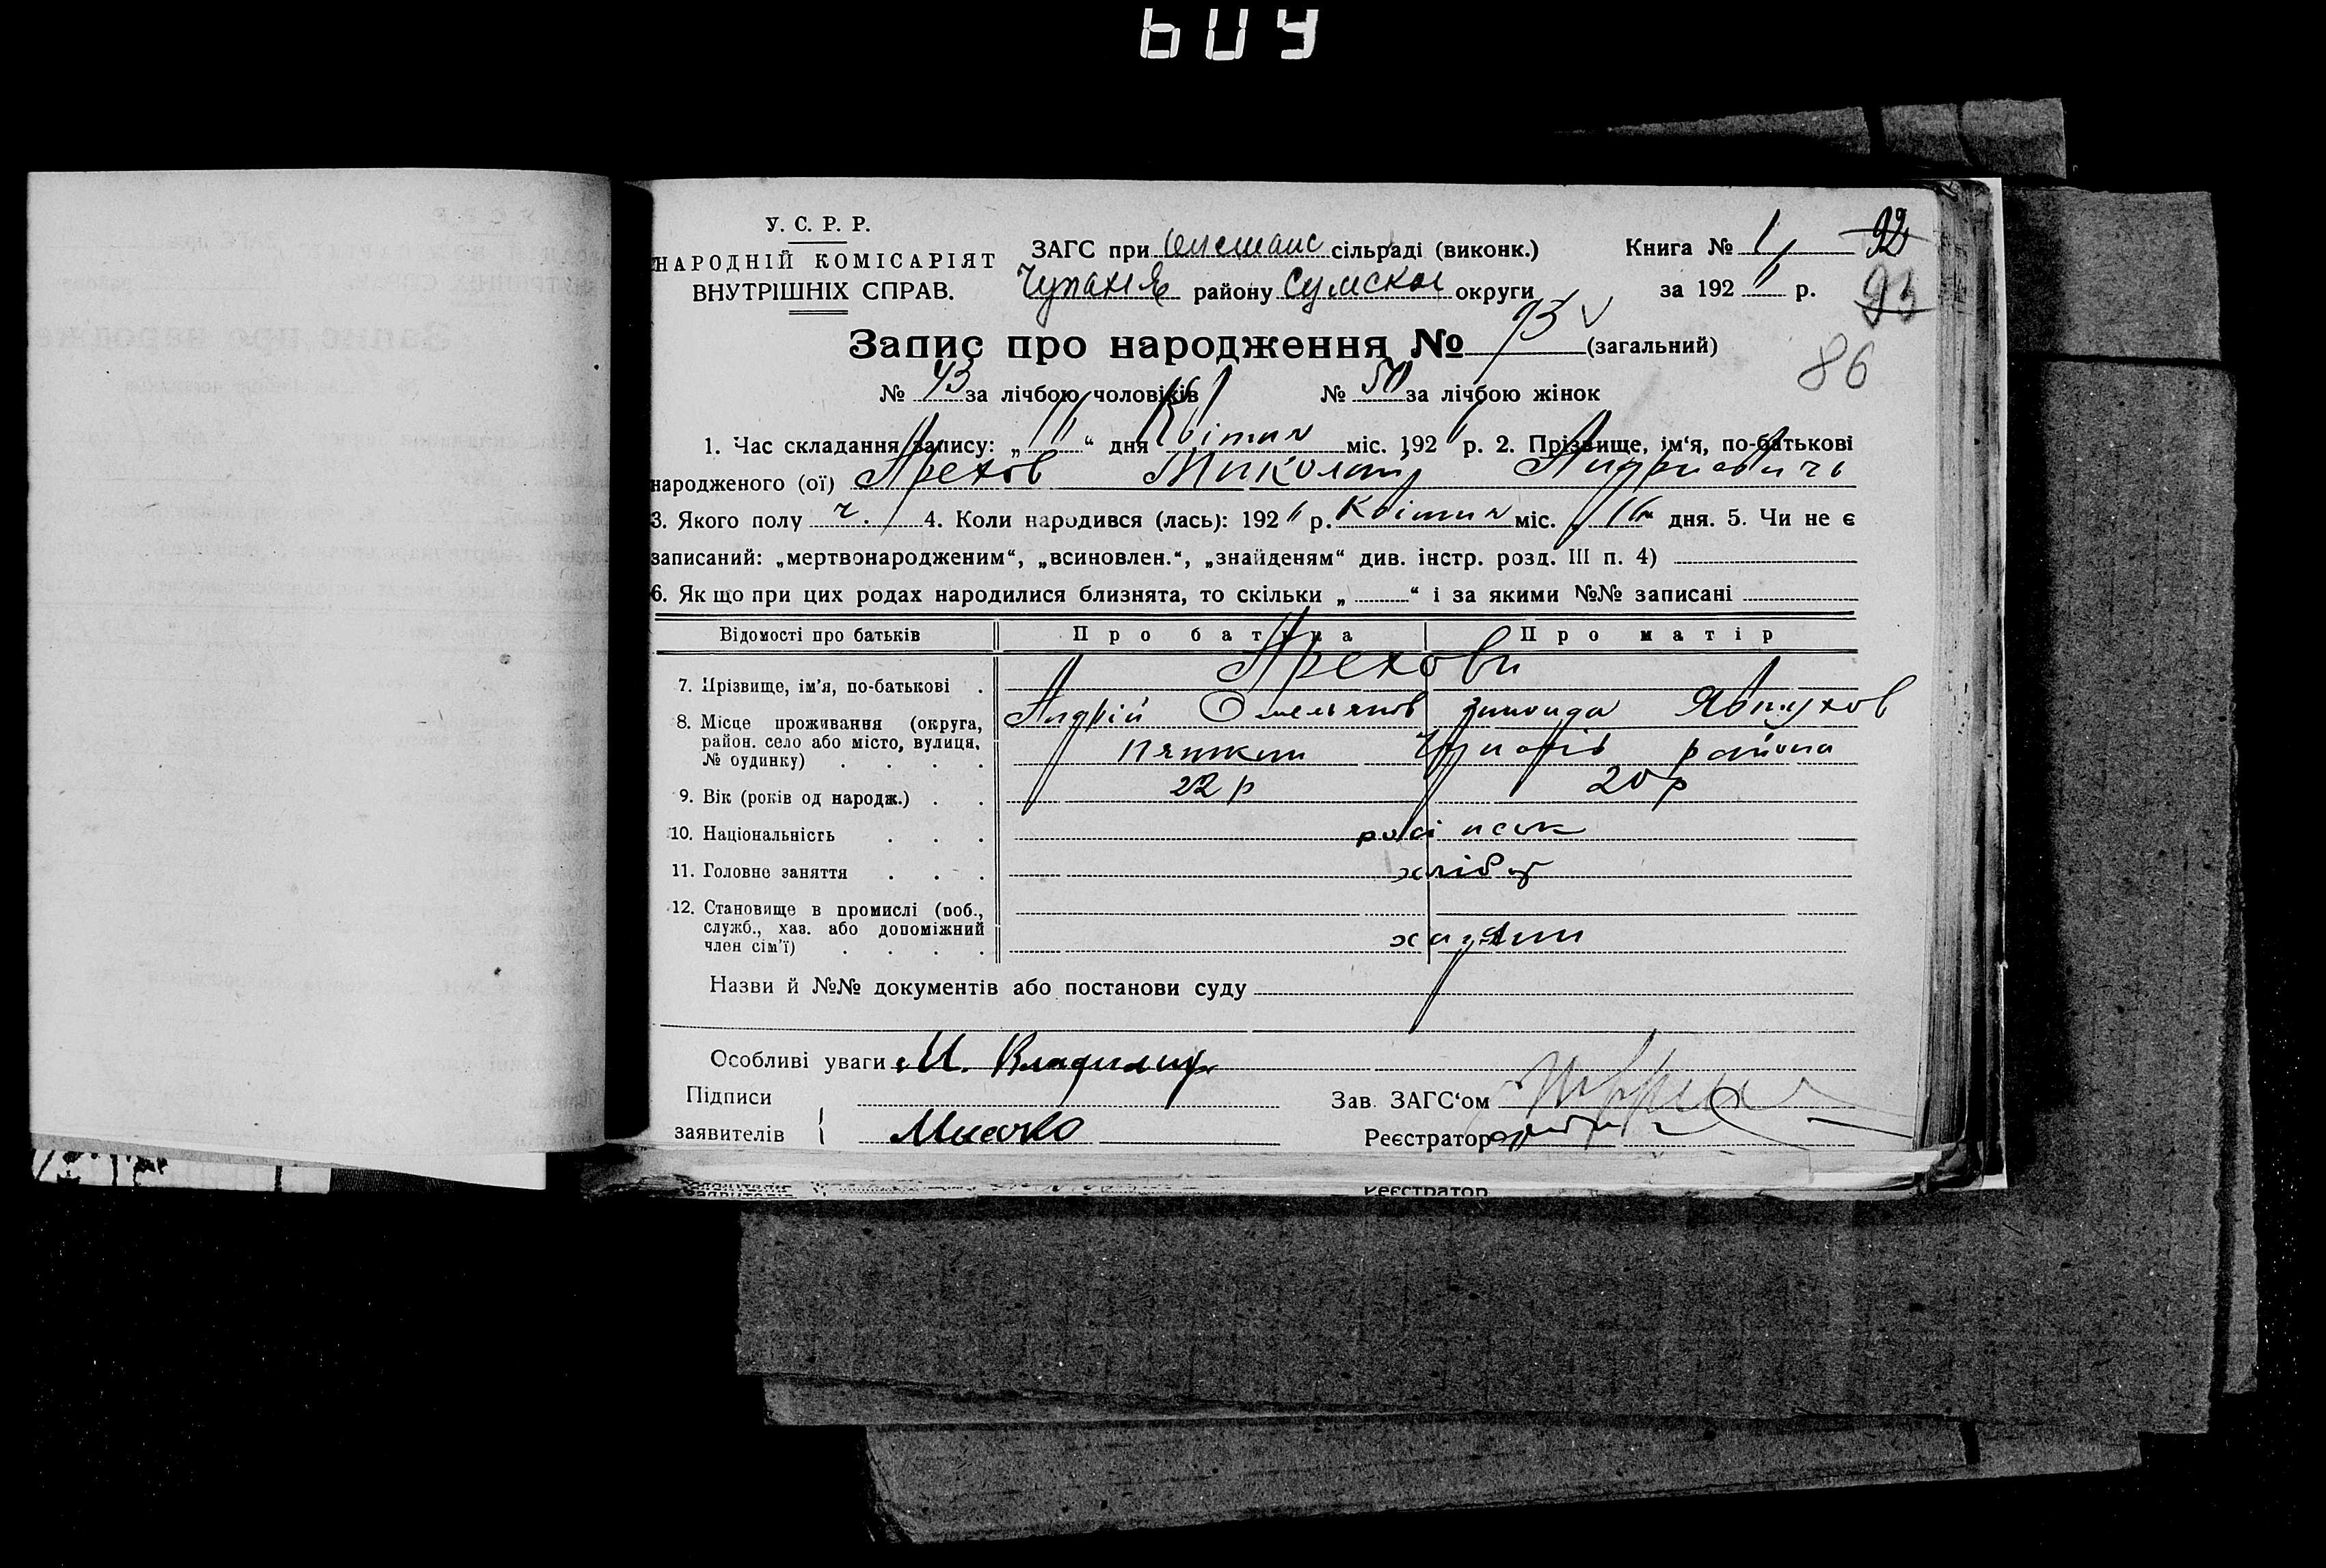 609
У. С. Р. Р.
НАРОДНІЙ КОМІСАРІЯТ
ВНУТРІШНІХ СПРАВ.
ЗАГС при сільраді (виконк.)
району Сумской округи
Книга № 1 92
за 192 р. 93
86
Запис про народження № 93 (загальний)
№ 43 за лічбою чоловіків № 50 за лічбою жінок
1. Час складання запису: „ “ дня Квітня міс. 1926 р. 2. Прізвище, ім‘я, по-батькові
народженого (ої) Арехов Миколай Андриевичь
3. Якого полу ч. 4. Коли народився (лась): 1926 р. Квітня міс. „ 16 “ дня. 5. Чи не є
записаний: „мертвонародженим“, „всиновлен.“, „знайденям“ див. інстр. розд. III п. 4)
6. Як що при цих родах народилися близнята, то скільки „ “ і за якими №№ записані
Відомості про батьків Про батька Про матір
7. Прізвище, ім’я, по-батькові Арехови
Андрій Омельянов Явтухов
8. Місце проживання (округа,
район. село або місто, вулиця,
№ будинку) района
9. Вік (років од народж.) 22 р 20 р
10. Національність росі нськ
11. Головне заняття хліб
12. Становище в промислі (роб.,
служб., хаз. або допоміжний
член сім’ї) хазяин
Назви й №№ документів або постанови суду
Особливі уваги М. Владимир
Підписи
заявителів
Зав. ЗАГС‘ом
Реєстратор
заявителів
Реєстратор